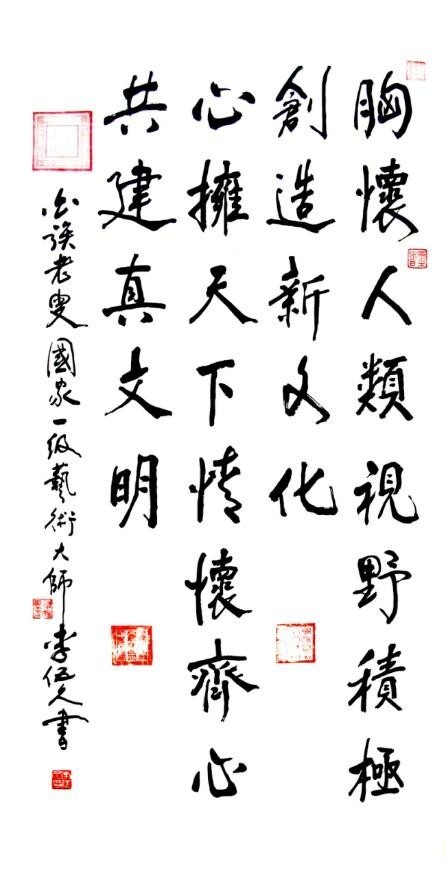 胸懷人類視野積極
創造新文化
心擁天下情懷齊心
共建真文明
白族老叟國家一級藝術大師李伍久書